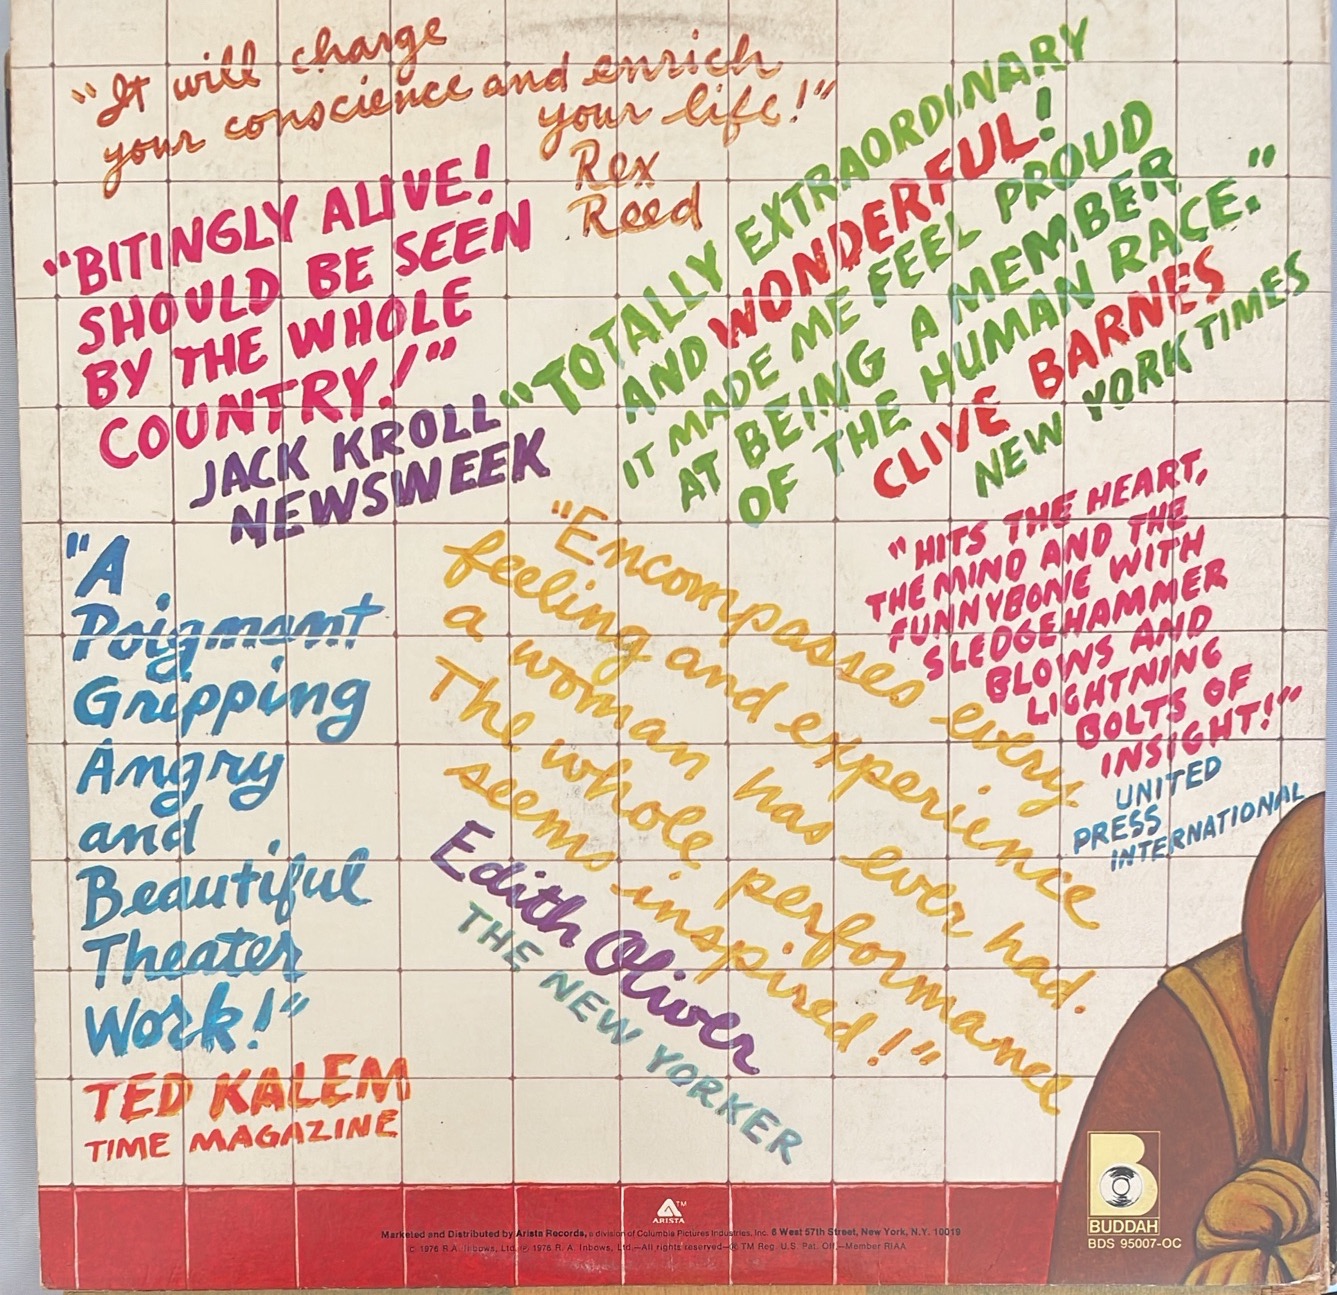 "It will charge
your conscience and enrich
your life!"
Rex
Reed
"BITINGLY ALIVE!
SHOULD BE SEEN
BY THE WHOLE
COUNTRY!"
JACK KROLL
NEWSWEEK
"TOTALLY EXTRAORDINARY
AND WONDERFUL!
IT MADE ME FEEL PROUD
AT BEING A MEMBER
OF THE HUMAN RACE."
CLIVE BARNES
NEW YORK TIMES
"A
Poignant
Gripping
Angry
and
Beautiful
Theater
Work!"
TED KALEM
TIME MAGAZINE
"Encompasses every
feeling and experience
a woman has ever had.
The whole performance
seems inspired!"
Edith Oliver
THE NEW YORKER
"HITS THE HEART,
THE MIND AND THE
FUNNYBONE WITH
SLEDGEHAMMER
BLOWS AND
LIGHTNING
BOLTS OF
INSIGHT!"
UNITED
PRESS
INTERNATIONAL
TM
ARISTA
Marketed and Distributed by Arista Records, a division of Columbia Pictures Industries, Inc. 6 West 57th Street, New York, N.Y. 10019
© 1976 R.A. Inbows, Ltd. ℗ 1976 R. A. Inbows, Ltd.—All rights reserved—® TM Reg. U.S. Pat. Off.—Member RIAA
B
BUDDAH
BDS 95007-OC